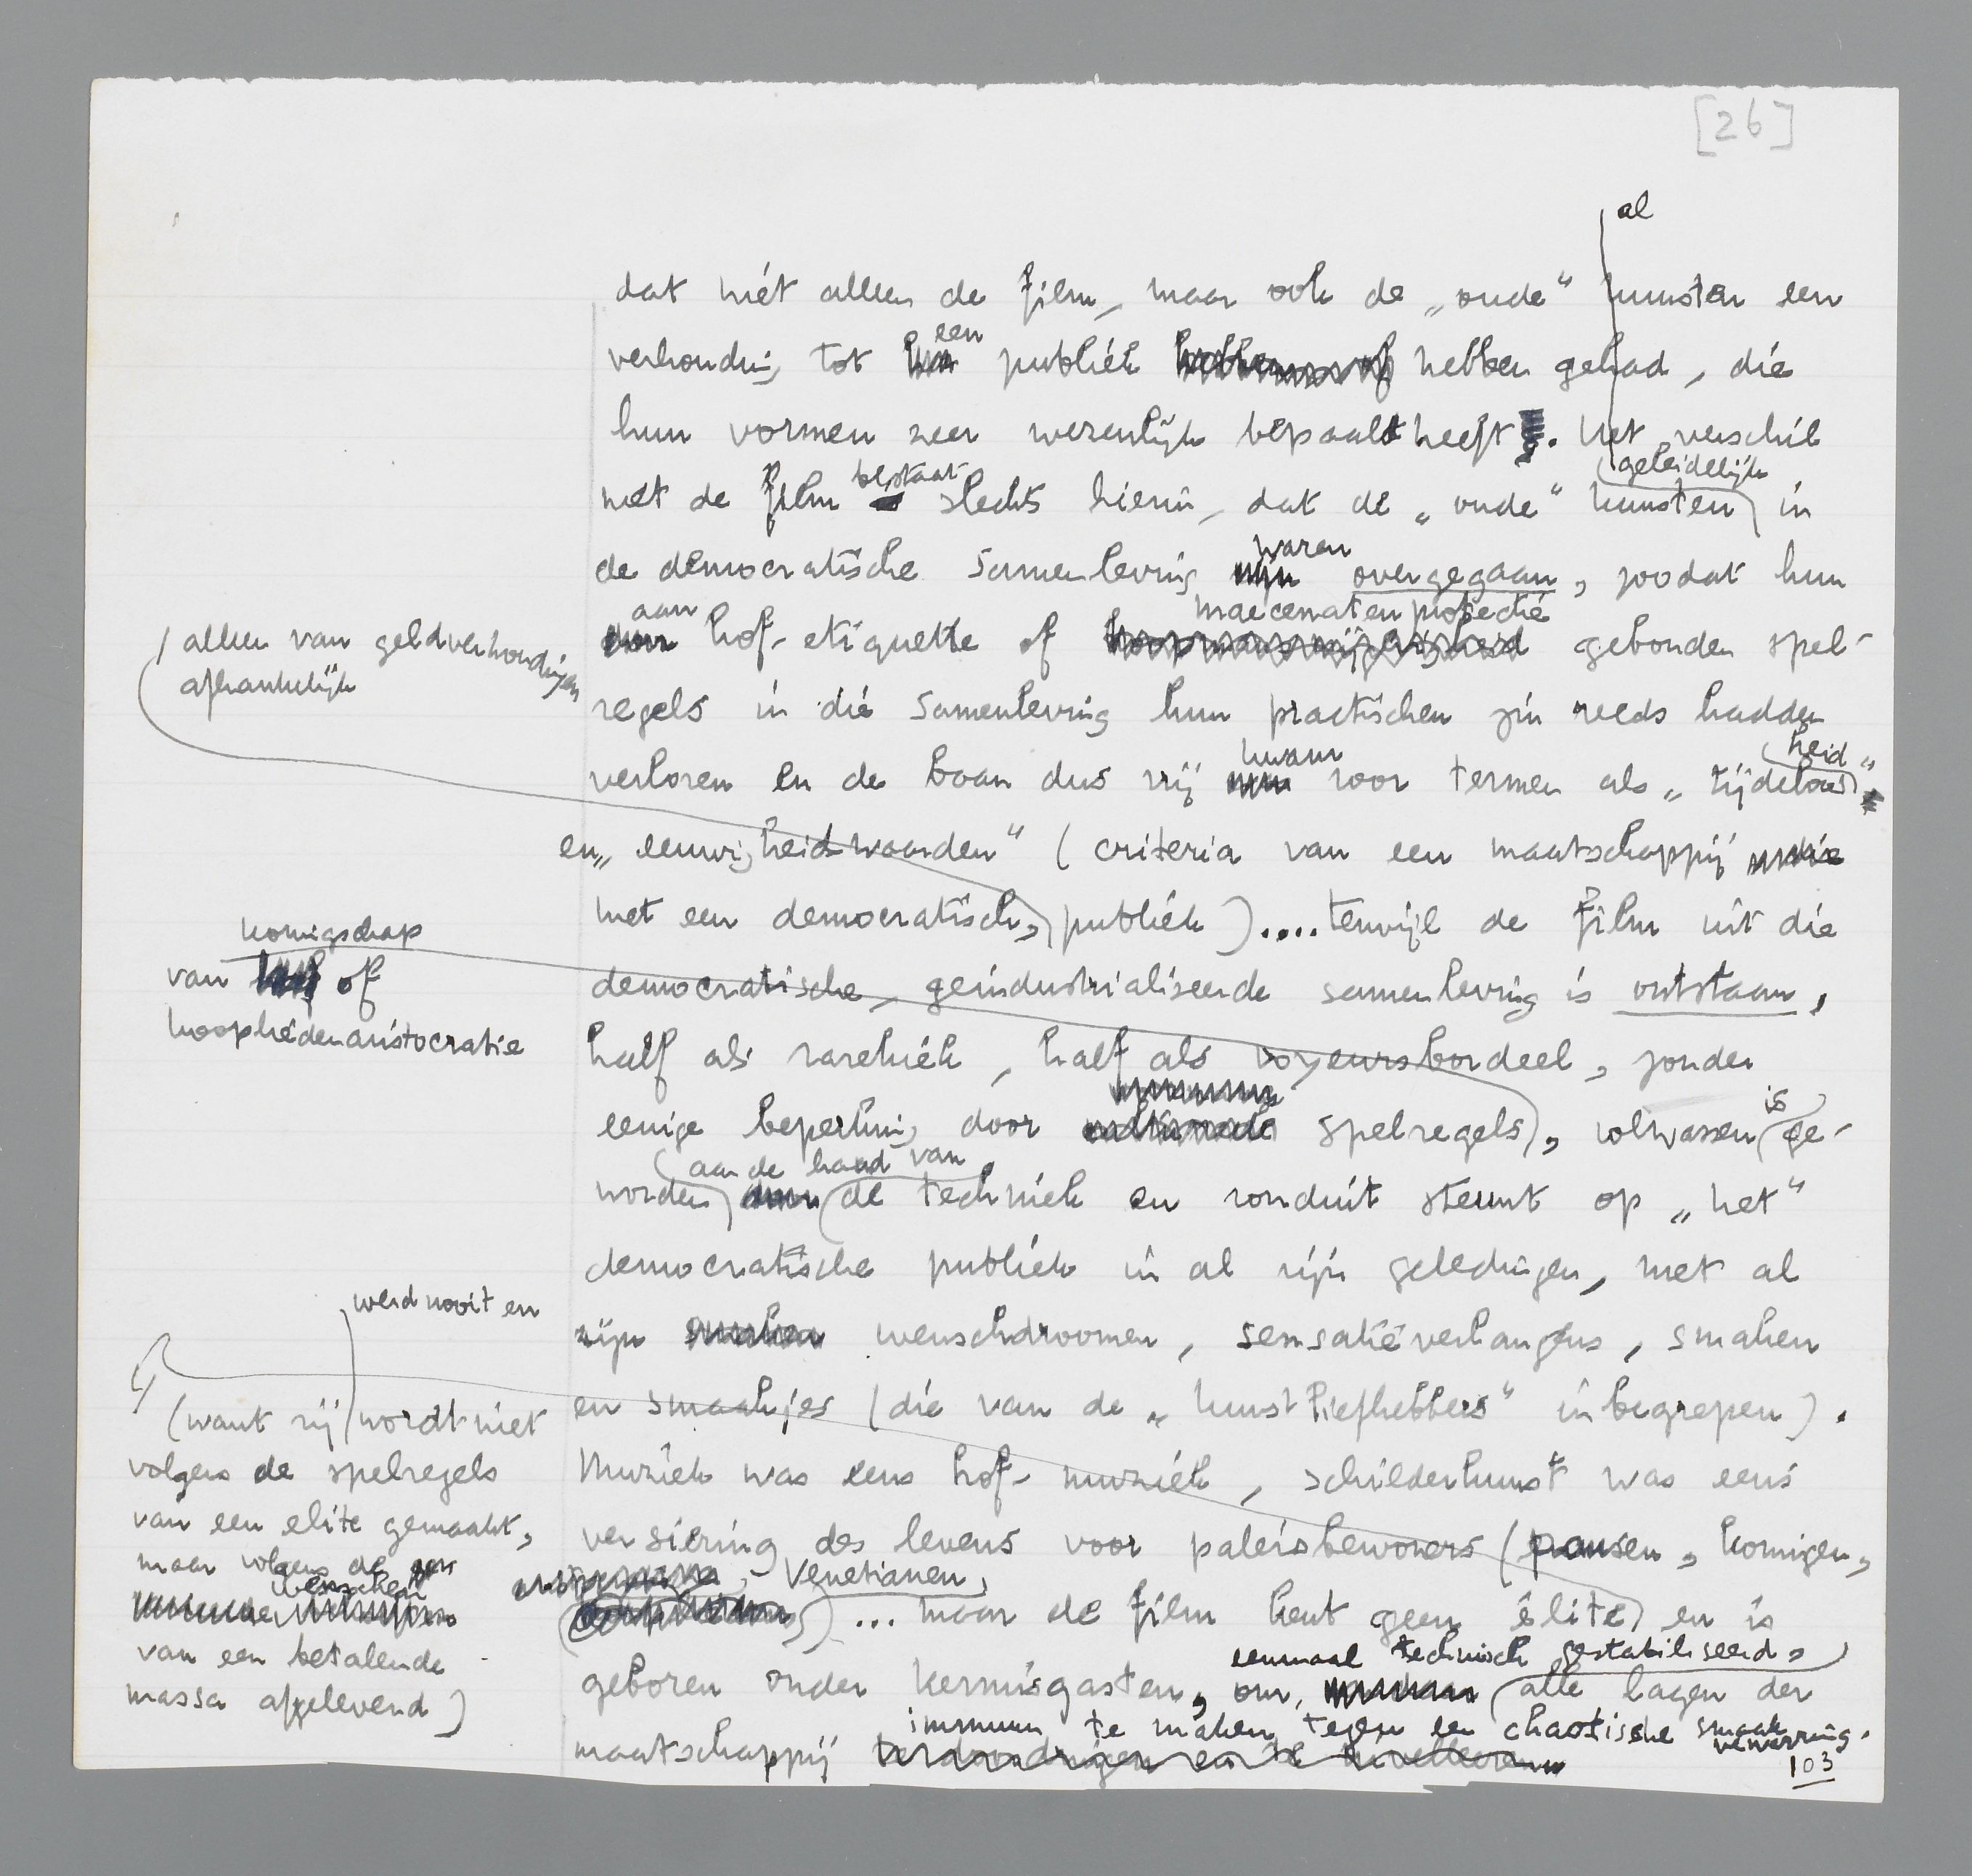 [26]
al
dat niét alleen de film, maar ook de „oude" kunsten een
een
verhouding tot publiek hebben gehad, die
hun vormen zeer wezenlijk bepaald heeft. Het verschil
geleidelijk
bestaat
met de film slechts hierin, dat de „oude" kunsten in
waren
de democratische samenleving overgegaan, zoodat hun
aan
maecenatenprotectie
hof-etiquette of gebonden spel-
(alleen van geldverhoudingen
afhankelijk
regels in die samenleving hun practischen zin reeds hadden
kwam
heid"
verloren en de baan dus vrij voor termen als „tijdeloos
en „eeuwigheidswaarden" (criteria van een maatschappij
met een democratisch, publiek).... terwijl de film uit die
koningschap
van of
kooplieden aristocratie
democratische, geïndustrialiseerde samenleving is ontstaan,
half als rarekiek, half als voyeursbordeel, zonder
is
eenige beperking door spelregels, volwassen ge-
aan de hand van
worden de techniek en ronduit steunt op „het"
democratische publiek in al zijn geledingen, met al
werd nooit en
zijn wenschdroomen, sensatieverlangens, smaken
en smaakjes (die van de „kunstliefhebbers" inbegrepen).
(want zij wordt niet
volgens de spelregels
van een elite gemaakt,
maar volgens de
wenschen
van een betalende
massa afgeleverd)
Muziek was eens hof-muziek, schilderkunst was eens
versiering des levens voor paleisbewoners (pausen, koningen,
Venetianen,
... maar de film kent geen élite en is
eenmaal technisch gestabiliseerd,
geboren onder kermisgasten, om, alle lagen der
immuun te maken tegen een chaotische smaak
verwarring.
maatschappij
103